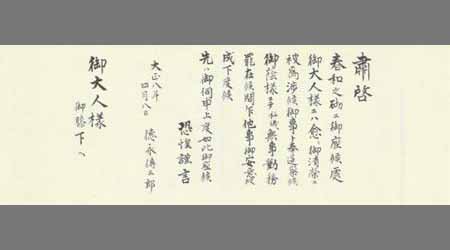 肅啓
春和之砌ニ御座候處
御大人様ニハ愈御清榮ニ
被為渉候御事ト奉遥察候
御陰様 無事勤務
罷在候間乍他事御安意被
成下度候
先ハ御伺申上度如此御座候
恐惶謹言
大正八年
四月八日
永
御大人様
御膝下ヘ